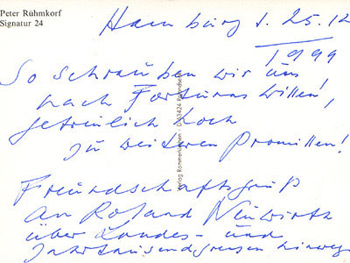 Peter Rühmkorf
Signatur 24
Hamburg d. 25.12
1999
So schrauben wir uns
nach Fortunas Willen,
getreulich hoch
zu weiteren Promillen!
Freundschaftsgruß
an Roland Neuwirth
über Landes- und
Jahrtausendgrenzen hinweg
Verlag